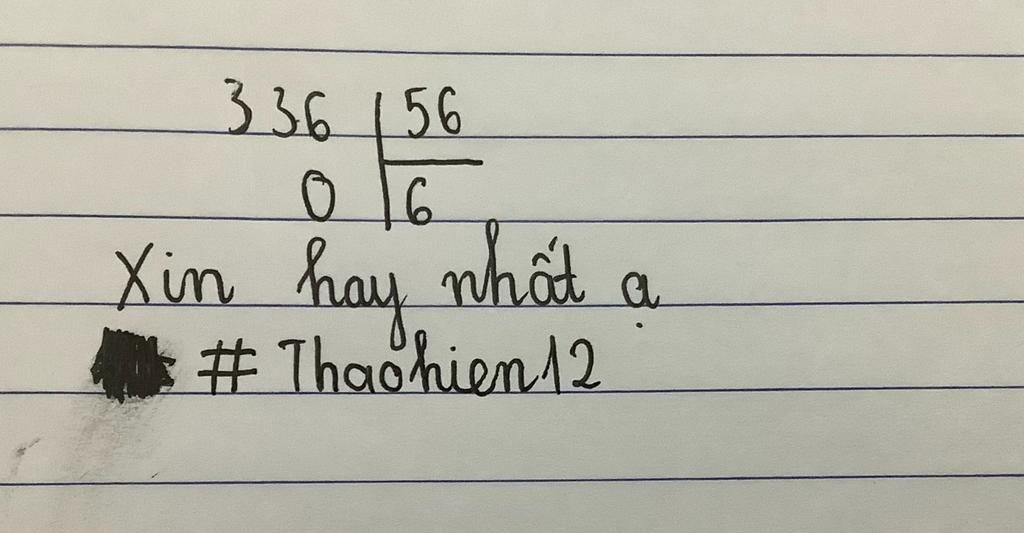 336 | 56
0 | 6
Xin hay nhất ạ
# Thaohien12